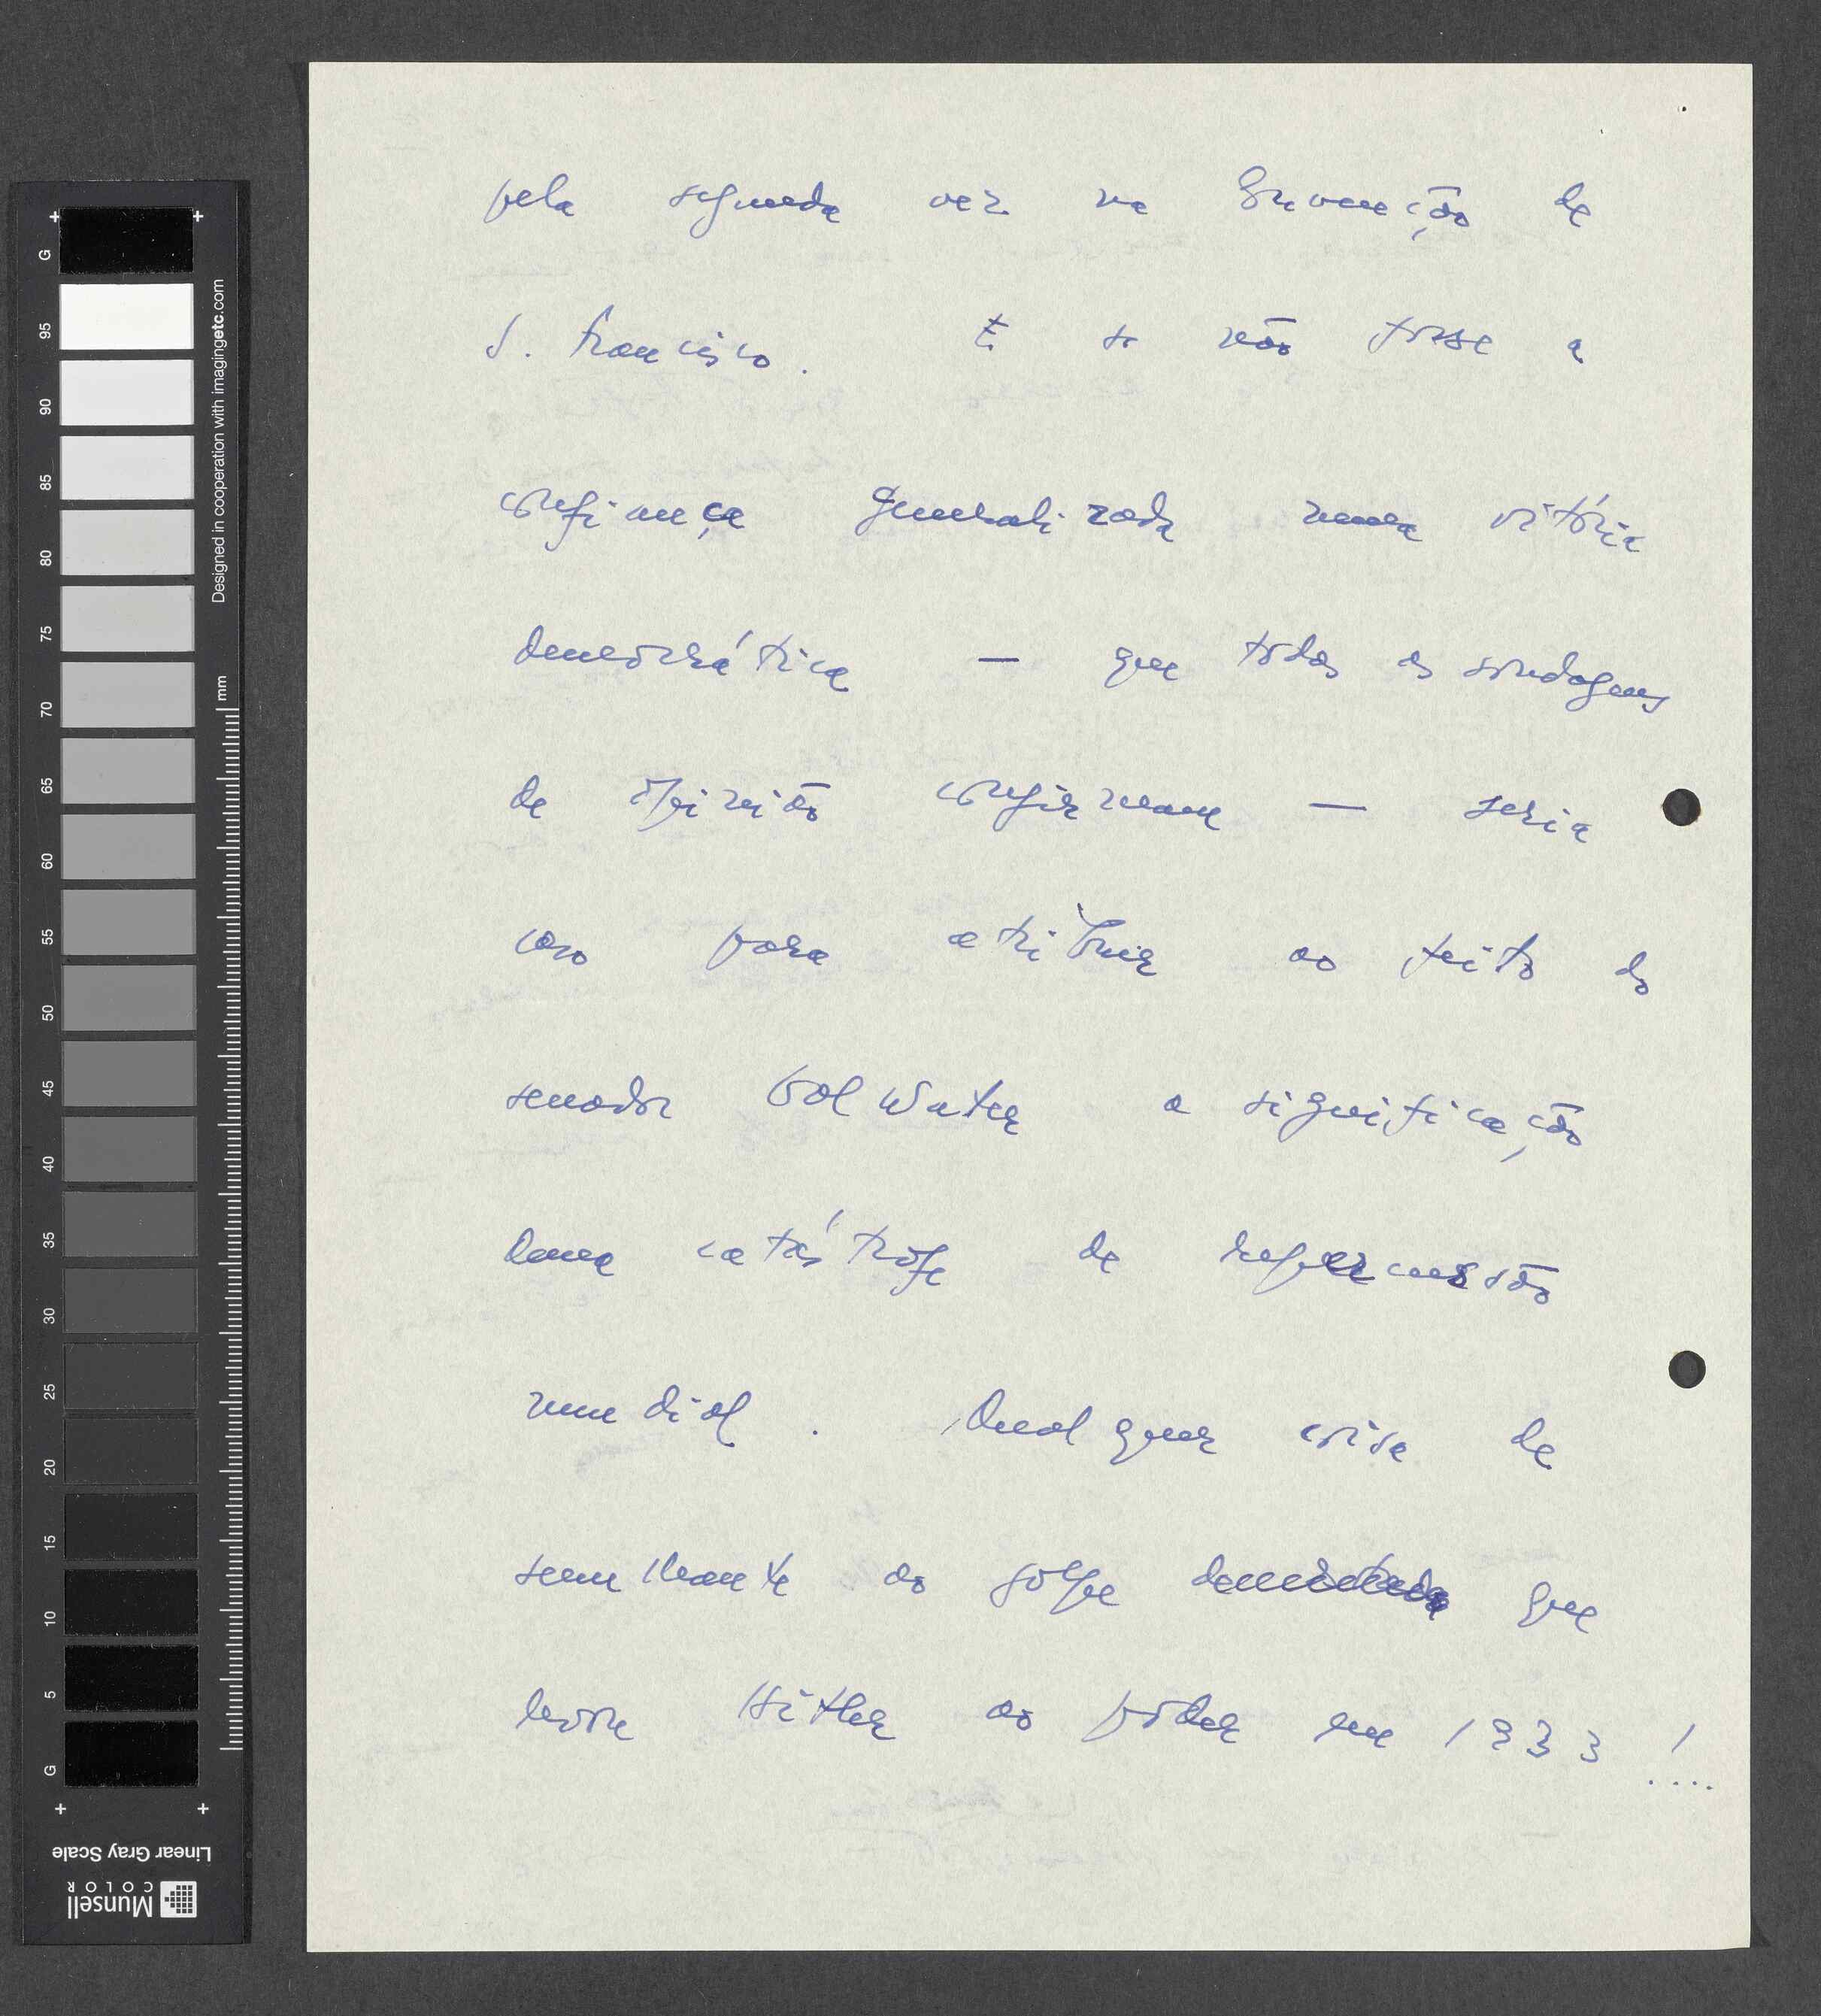 pela segunda vez na Convenção de
S. Francisco. E se não fosse a
confiança generalizada numa vitória
democrática — que todas as sondagens
de opinião confirmam — seria
caso para atribuir ao feito do
senador Golwater a significação
duma catástrofe de repercussão
mundial. Qualquer coisa de
semelhante ao golpe que
levou Hitler ao poder em 1933!....
G
95
90
85
80
75
70
65
60
55
50
45
40
35
30
25
20
15
10
5
G
mm
Designed in cooperation with imagingetc.com
Linear Gray Scale
Munsell
COLOR